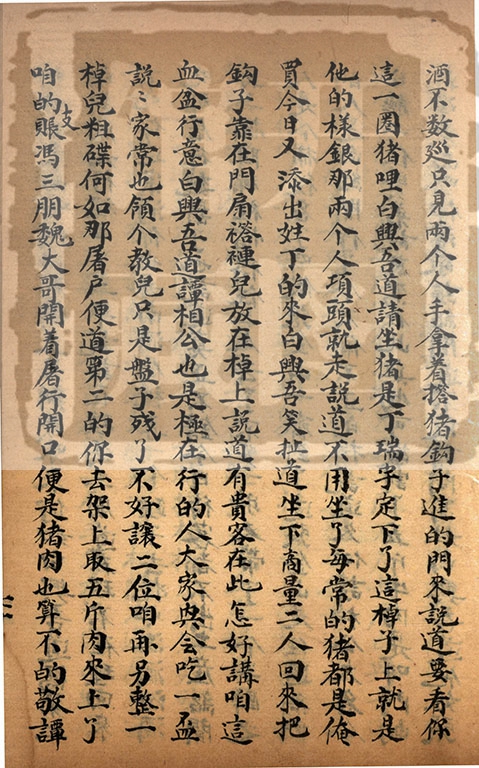 酒不数廵只見兩个人手拿着搭猪鈎子進的門來說道要看你
這一圏猪哩白興吾道請坐猪是丁瑞宇定下了這棹子上就是
他的樣銀那兩个人項頭就走說道不用坐了每常的猪都是俺
買今日又添出姓丁的來白興吾笑扯道坐下商量二人回來把
鈎子靠在門扇褡褳兒放在棹上說道有貴客在此怎好講咱這
血盆行意白興吾道譚相公也是極在行的人大家與会吃一盃
說〻家常也領个教兒只是盤子残了不好讓二位咱再另整一
棹兒粗碟何如那屠户便道第二的你去架上取五斤肉來上了
咱的賬馮三朋魏大哥開着屠行開口便是猪肉也算不的敬譚
支